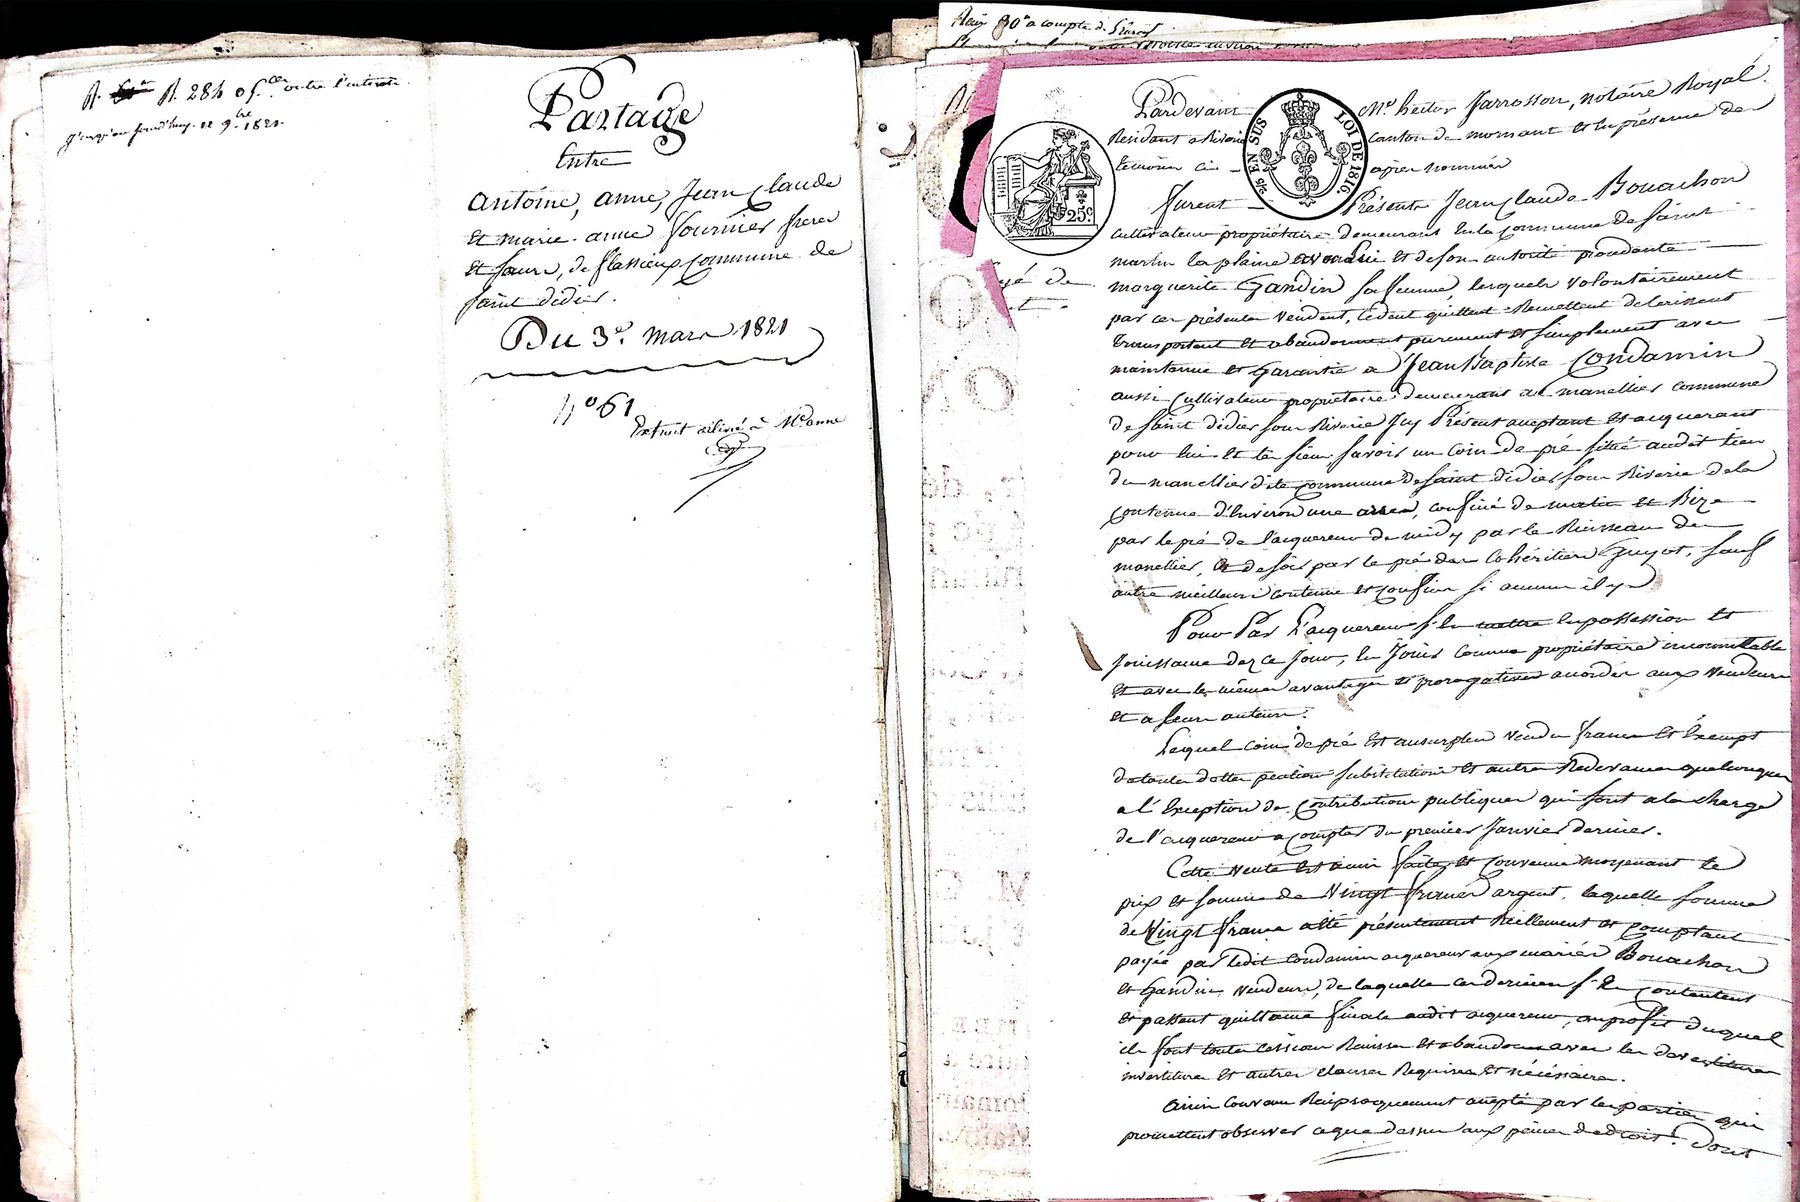 R. 284 05 ces outre l'interet
jusqu'au jourd'huy 12 9bre 1821.
Partage
Entre
antoine, anne, Jean Claude
et marie anne fournier frere
et soeurs, de flassieux Commune de
saint didier.
Du 3e. mars 1821
No 61
Extrait délivré à Me. anne
Reçu 80 a compte de
Pardevant Me hector Jarrosson, notaire Royal
Residant a Riverie canton de mornant et en présence des
temoins ci - apres nommés
EN SUS LOI DE 1816
25c
furent - Présents Jean Claude Bouachon
cultivateur propriétaire demeurant en la Commune de Saint
martin la plaine et de son autorité procedante
marguerite Gandin sa femme, lesquels volontairement
par ces présentes vendent, cedent quittent Remettent delaissent
transportent et abandonnent purement et simplement avec
maintenue et Garantie a Jean Baptiste Condamin
aussi Cultivateur propriétaire demeurant au manellier commune
de Saint didier sous Riverie Icy Présent acceptant et acquerant
pour lui et les siens savoir un Coin de pré situé audit lieu
du manellier dite Commune de Saint didier sous Riverie de la
contenue d'Environ une arrea, confiné de matin et Bize
par le pré de l'acquereur de midy par le Ruisseau de
manellier, et de soir par le pré des Cohéritiers Guyot, sauf
autre meilleure contenue et Confins si aucuns il y a
Pour Par L'acquereur s'en mettre en possession et
jouissance dez ce jour, en Jouir comme propriétaire incommutable
et avec les mêmes avantages et prerogatives accordés aux vendeurs
et a leurs auteurs.
Lequel coin de pré est au surplus vendu franc et Exempt
de toutes dettes pention substitution et autres Redevances quelconques
a l'Exception des Contributions publiques qui sont a la charge
de l'acquereur a Compter du premier Janvier dernier.
Cette vente est ainsi faite et Convenue moyenant le
prix et somme de Vingt francs argent, laquelle somme
de Vingt francs a été présentement Réellement et Comptant
payée par ledit Condamin acquereur aux mariés Bouachon
et Gandin vendeurs, de laquelle ces derniers s'en Contentent
et passent quittance finale audit acquereur, au profit duquel
ils font toutes Cessions Remises et abandons avec les devestitures
investitures et autres clauses Requises et nécéssaires.
ainsi Convenu Réciproquement accepté par les parties qui
promettent observer ce que dessus aux peines de droit. Dont